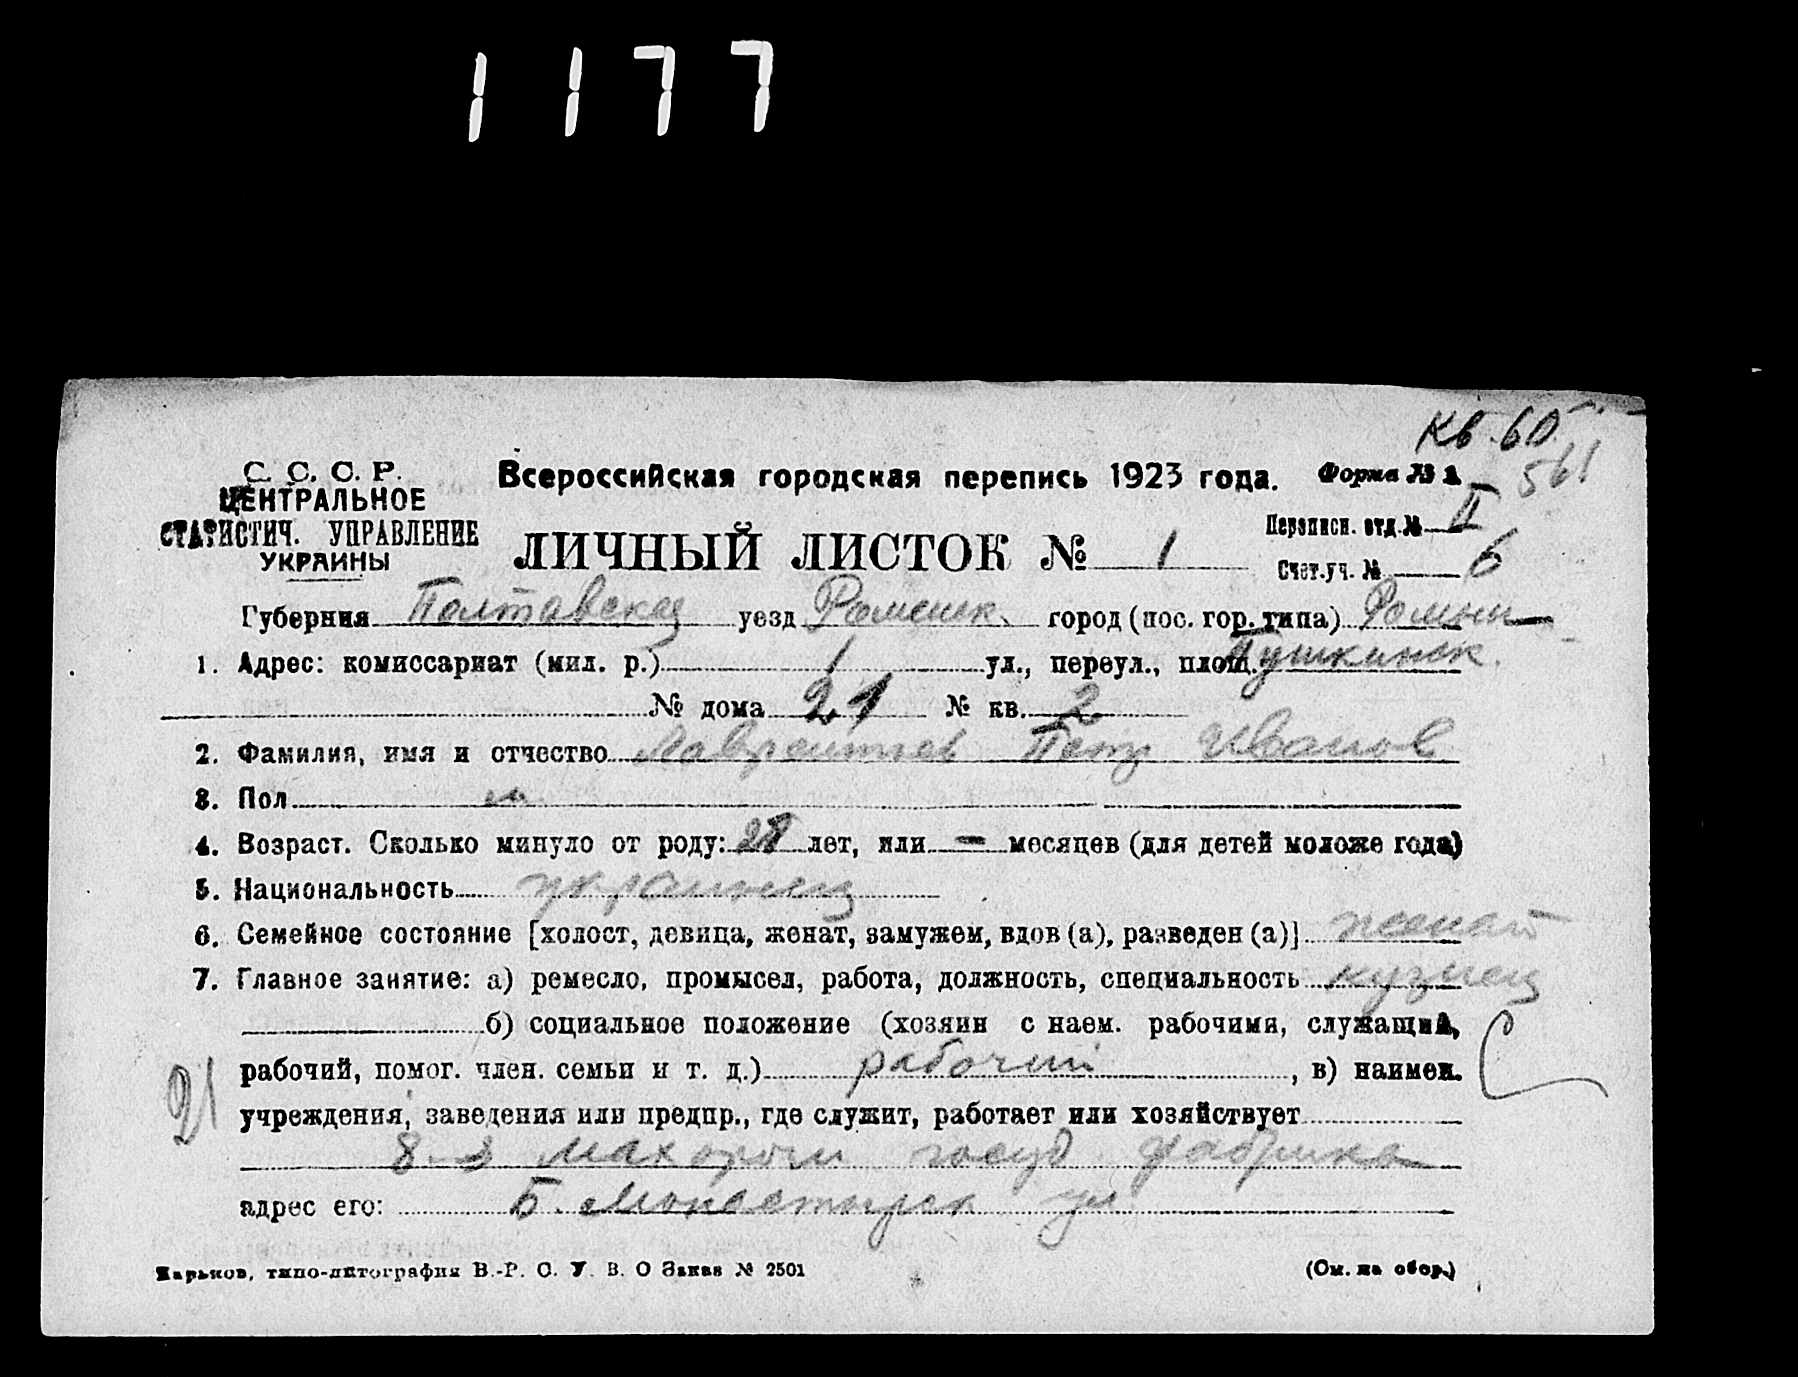 1177
кв. 60
561
С. С. С. Р.
ЦЕНТРАЛЬНОЕ
СТАТИСТИЧ. УПРАВЛЕНИЕ
УКРАИНЫ
Всероссийская городская перепись 1923 года. Форма № 1
ЛИЧНЫЙ ЛИСТОК № 1
Переписн. отд. № II
Счет. уч. № 6
Губерния Полтавская уезд Роменск. город (пос. гор. типа) Ромны
1. Адрес: комиссариат (мил. р.) 1 ул., переул., площ. Пушкинск.
№ дома 21 № кв. 2
2. Фамилия, имя и отчество Лаврентьев Петр Иванов
3. Пол м.
4. Возраст. Сколько минуло от роду: лет, или — месяцев (для детей моложе года)
5. Национальность украинец
6. Семейное состояние [холост, девица, женат, замужем, вдов (а), разведен (а)] женат
7. Главное занятие: а) ремесло, промысел, работа, должность, специальность кузнец
б) социальное положение (хозяин с наем. рабочими, служащий,
рабочий, помог. член. семьи и т. д.) рабочий, в) наимен.
21
учреждения, заведения или предпр., где служит, работает или хозяйствует
8-я Махорочн госуд фабрика
адрес его: Б. Монастырск ул.
Харьков, типо-литография В.-Р. С. У. В. О Заказ № 2501
(См. на обор.)